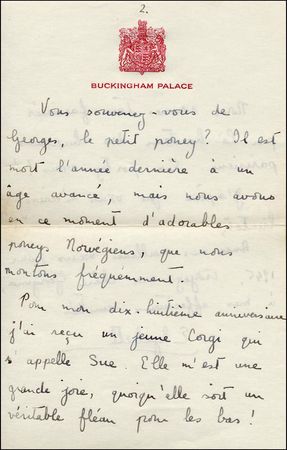 2.
BUCKINGHAM PALACE
Vous souvenez-vous de
Georges, le petit poney? Il est
mort l'année dernière à un
âge avancé, mais nous avons
en ce moment d'adorables
poneys Norvégiens, que nous
montons fréquemment.
Pour mon dix-huitième anniversaire
j'ai reçu un jeune Corgi qui
s'appelle Sue. Elle m'est une
grande joie, quoiqu'elle soit un
véritable fléau pour les bas!